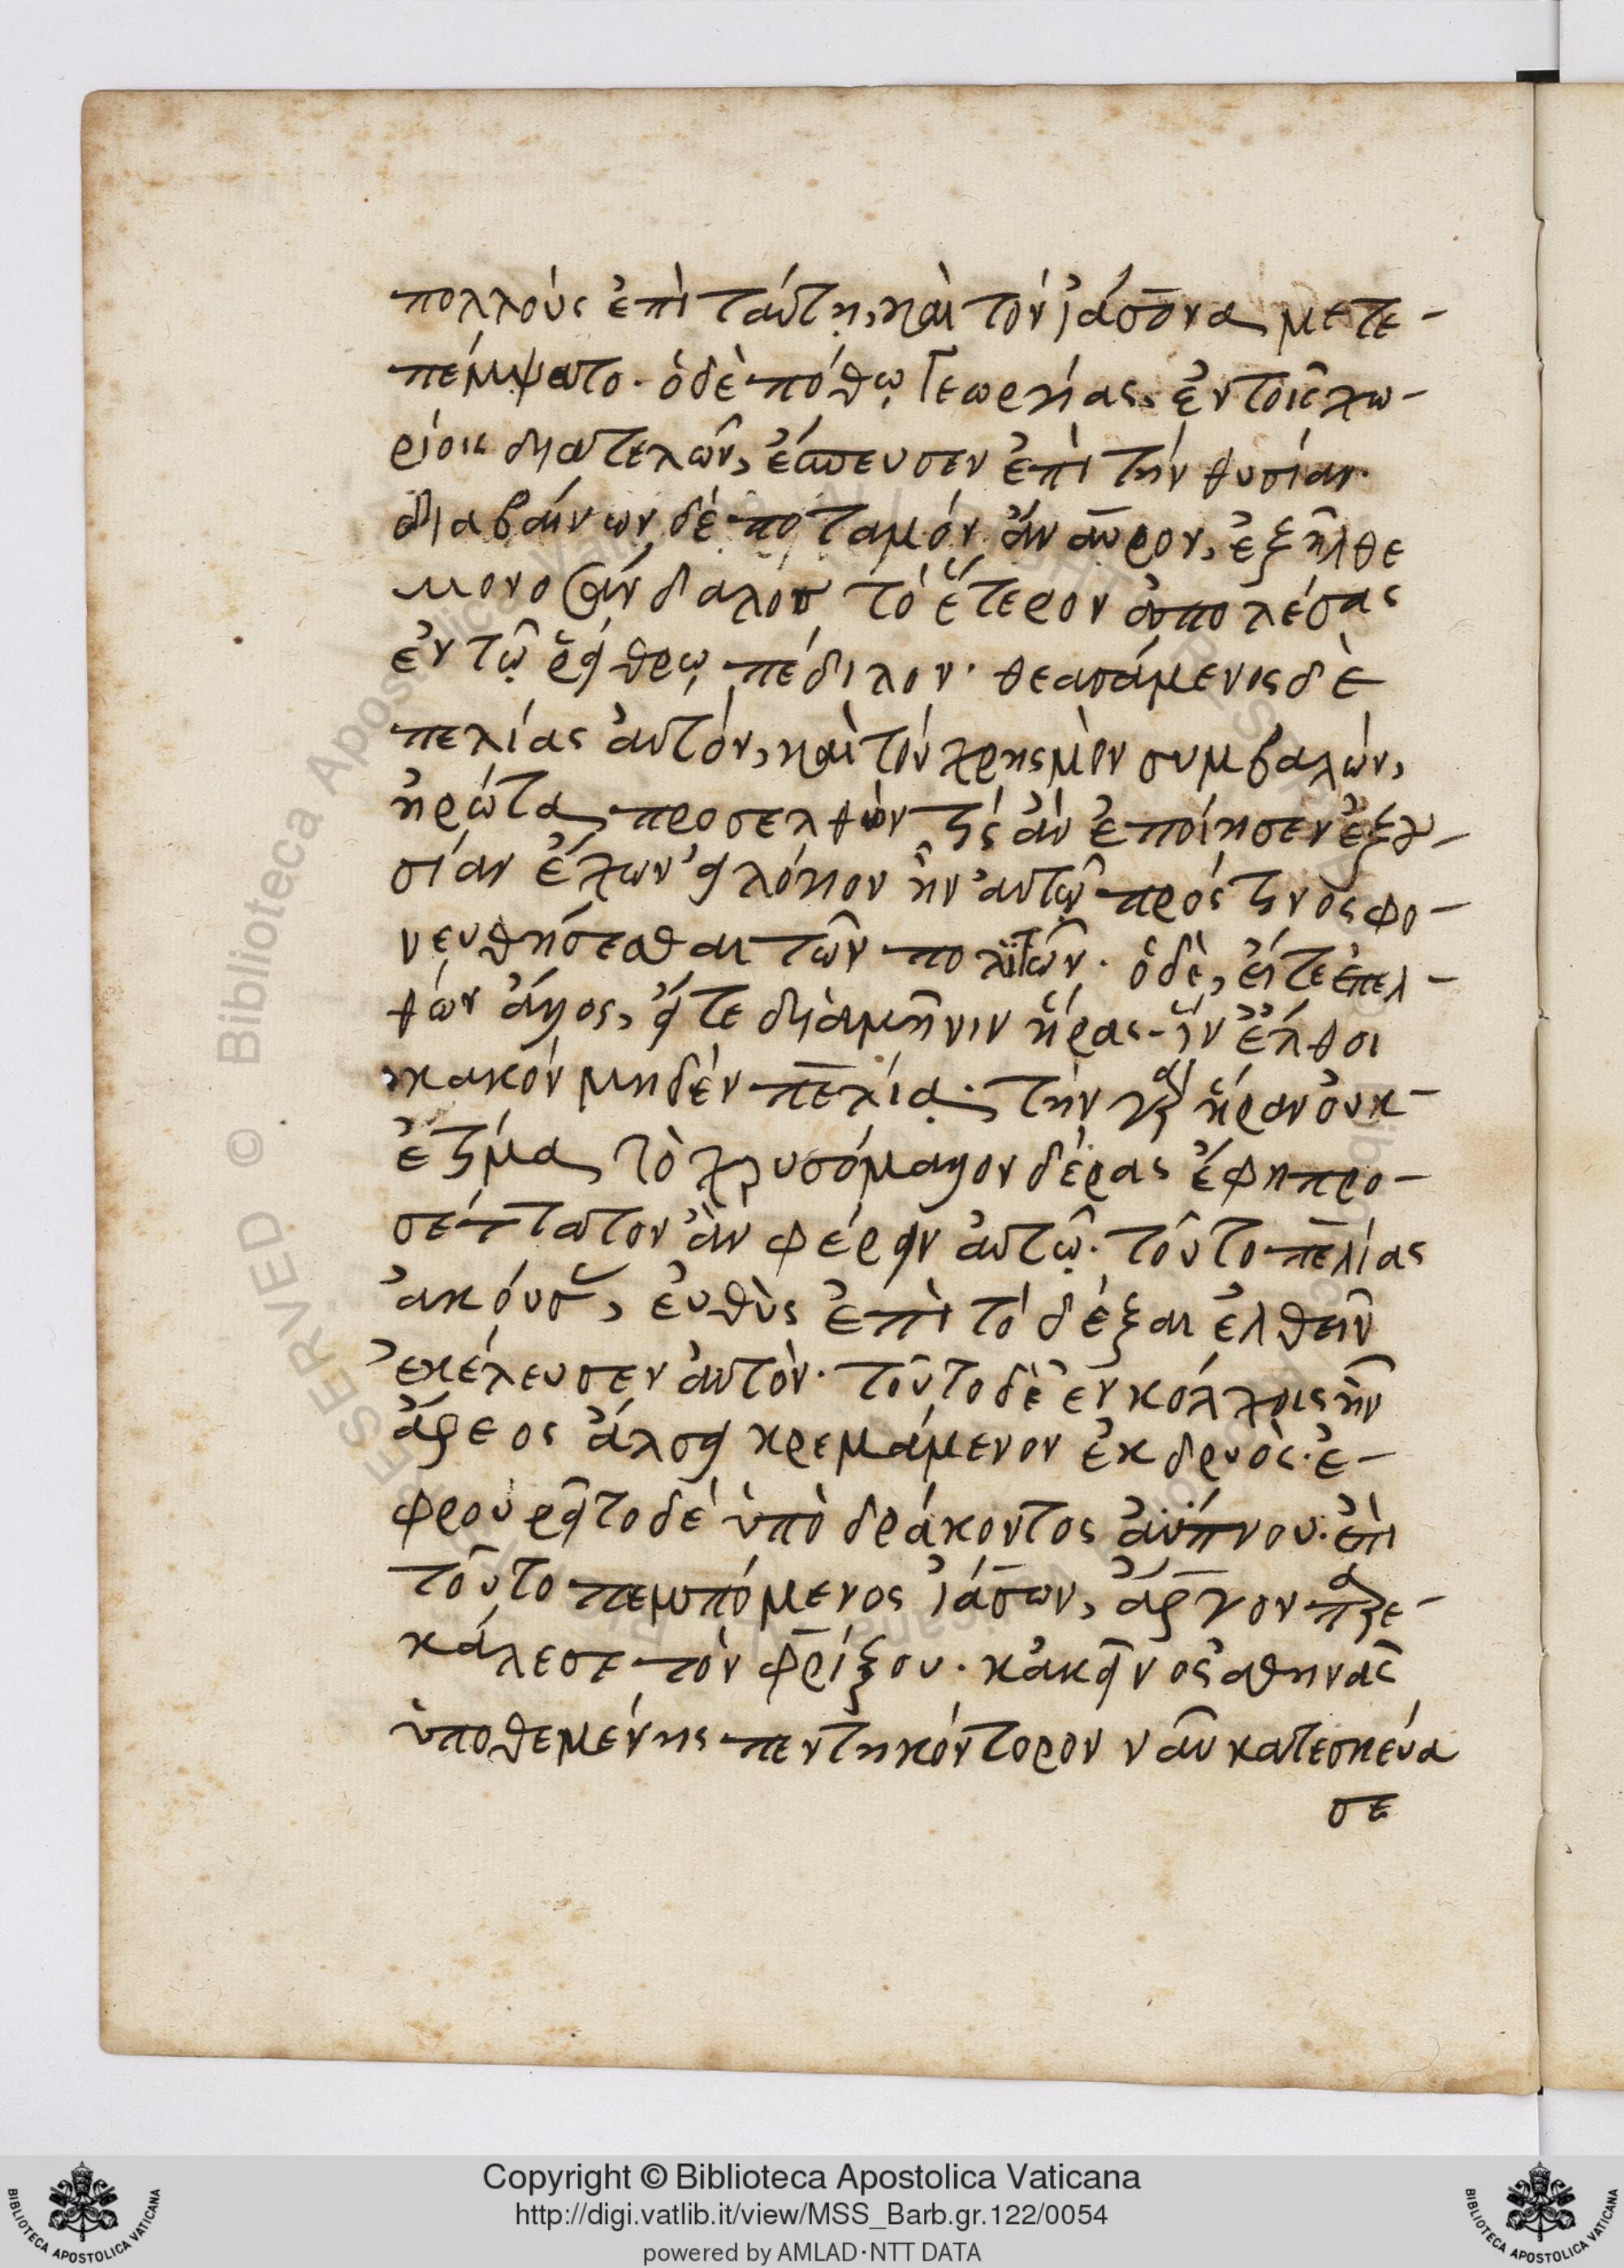 πολλοὺς ἐπὶ ταύτῃ, καὶ τὸν ἰάσονα μετε-
πέμψατο. ὁ δὲ πόθῳ Γεωργίας, ἐν τοῖς χω-
ρίοις διατελῶν, ἔσπευσεν ἐπὶ τὴν θυσίαν.
διαβαίνων δὲ ποταμὸν ἄναυρον, ἐξῆλθε
μονοσάνδαλος τὸ ἕτερον ἀπολέσας
ἐν τῷ ῥείθρῳ πέδιλον. θεασάμενος δὲ
πελίας αὐτὸν, καὶ τὸν χρησμὸν συμβαλὼν,
ἠρώτα προσελθὼν τί ἂν ἐποίησεν ἐξου-
σίαν ἔχων εἰ λόγιον ἦν αὐτῷ πρός τινος φο-
νευθήσεσθαι τῶν πολιτῶν. ὁ δὲ, εἴτε ἐπελ-
θὼν ἄλλος, εἴτε διὰ μῆνιν ἥρας ἵν' ἔλθοι
κακὸν μηδὲν πελίᾳ. τὴν γὰρ ἥραν οὐκ
ἐτίμα, τὸ χρυσόμαλλον δέρας ἔφη προ-
σέταττον ἂν φέρειν αὐτῷ. τοῦτο πελίας
ἀκούσας, εὐθὺς ἐπὶ τὸ δέξαι ἐλθεῖν
ἐκέλευσεν αὐτόν. τοῦτο δὲ ἐν κόλχοις ἦν
ἄρεος ἄλσει κρεμάμενον ἐκ δρυός. ἐ-
φρουρεῖτο δὲ ὑπὸ δράκοντος ἀύπνου. ἐπὶ
τοῦτο πεμπόμενος ἰάσων, ἄργον παρε-
κάλεσε τὸν φρίξου. κἀκεῖνος ἀθηνᾶς
ὑποθεμένης πεντηκόντορον ναῦν κατεσκεύα
σε
Copyright © Biblioteca Apostolica Vaticana
http://digi.vatlib.it/view/MSS_Barb.gr.122/0054
powered by AMLAD·NTT DATA